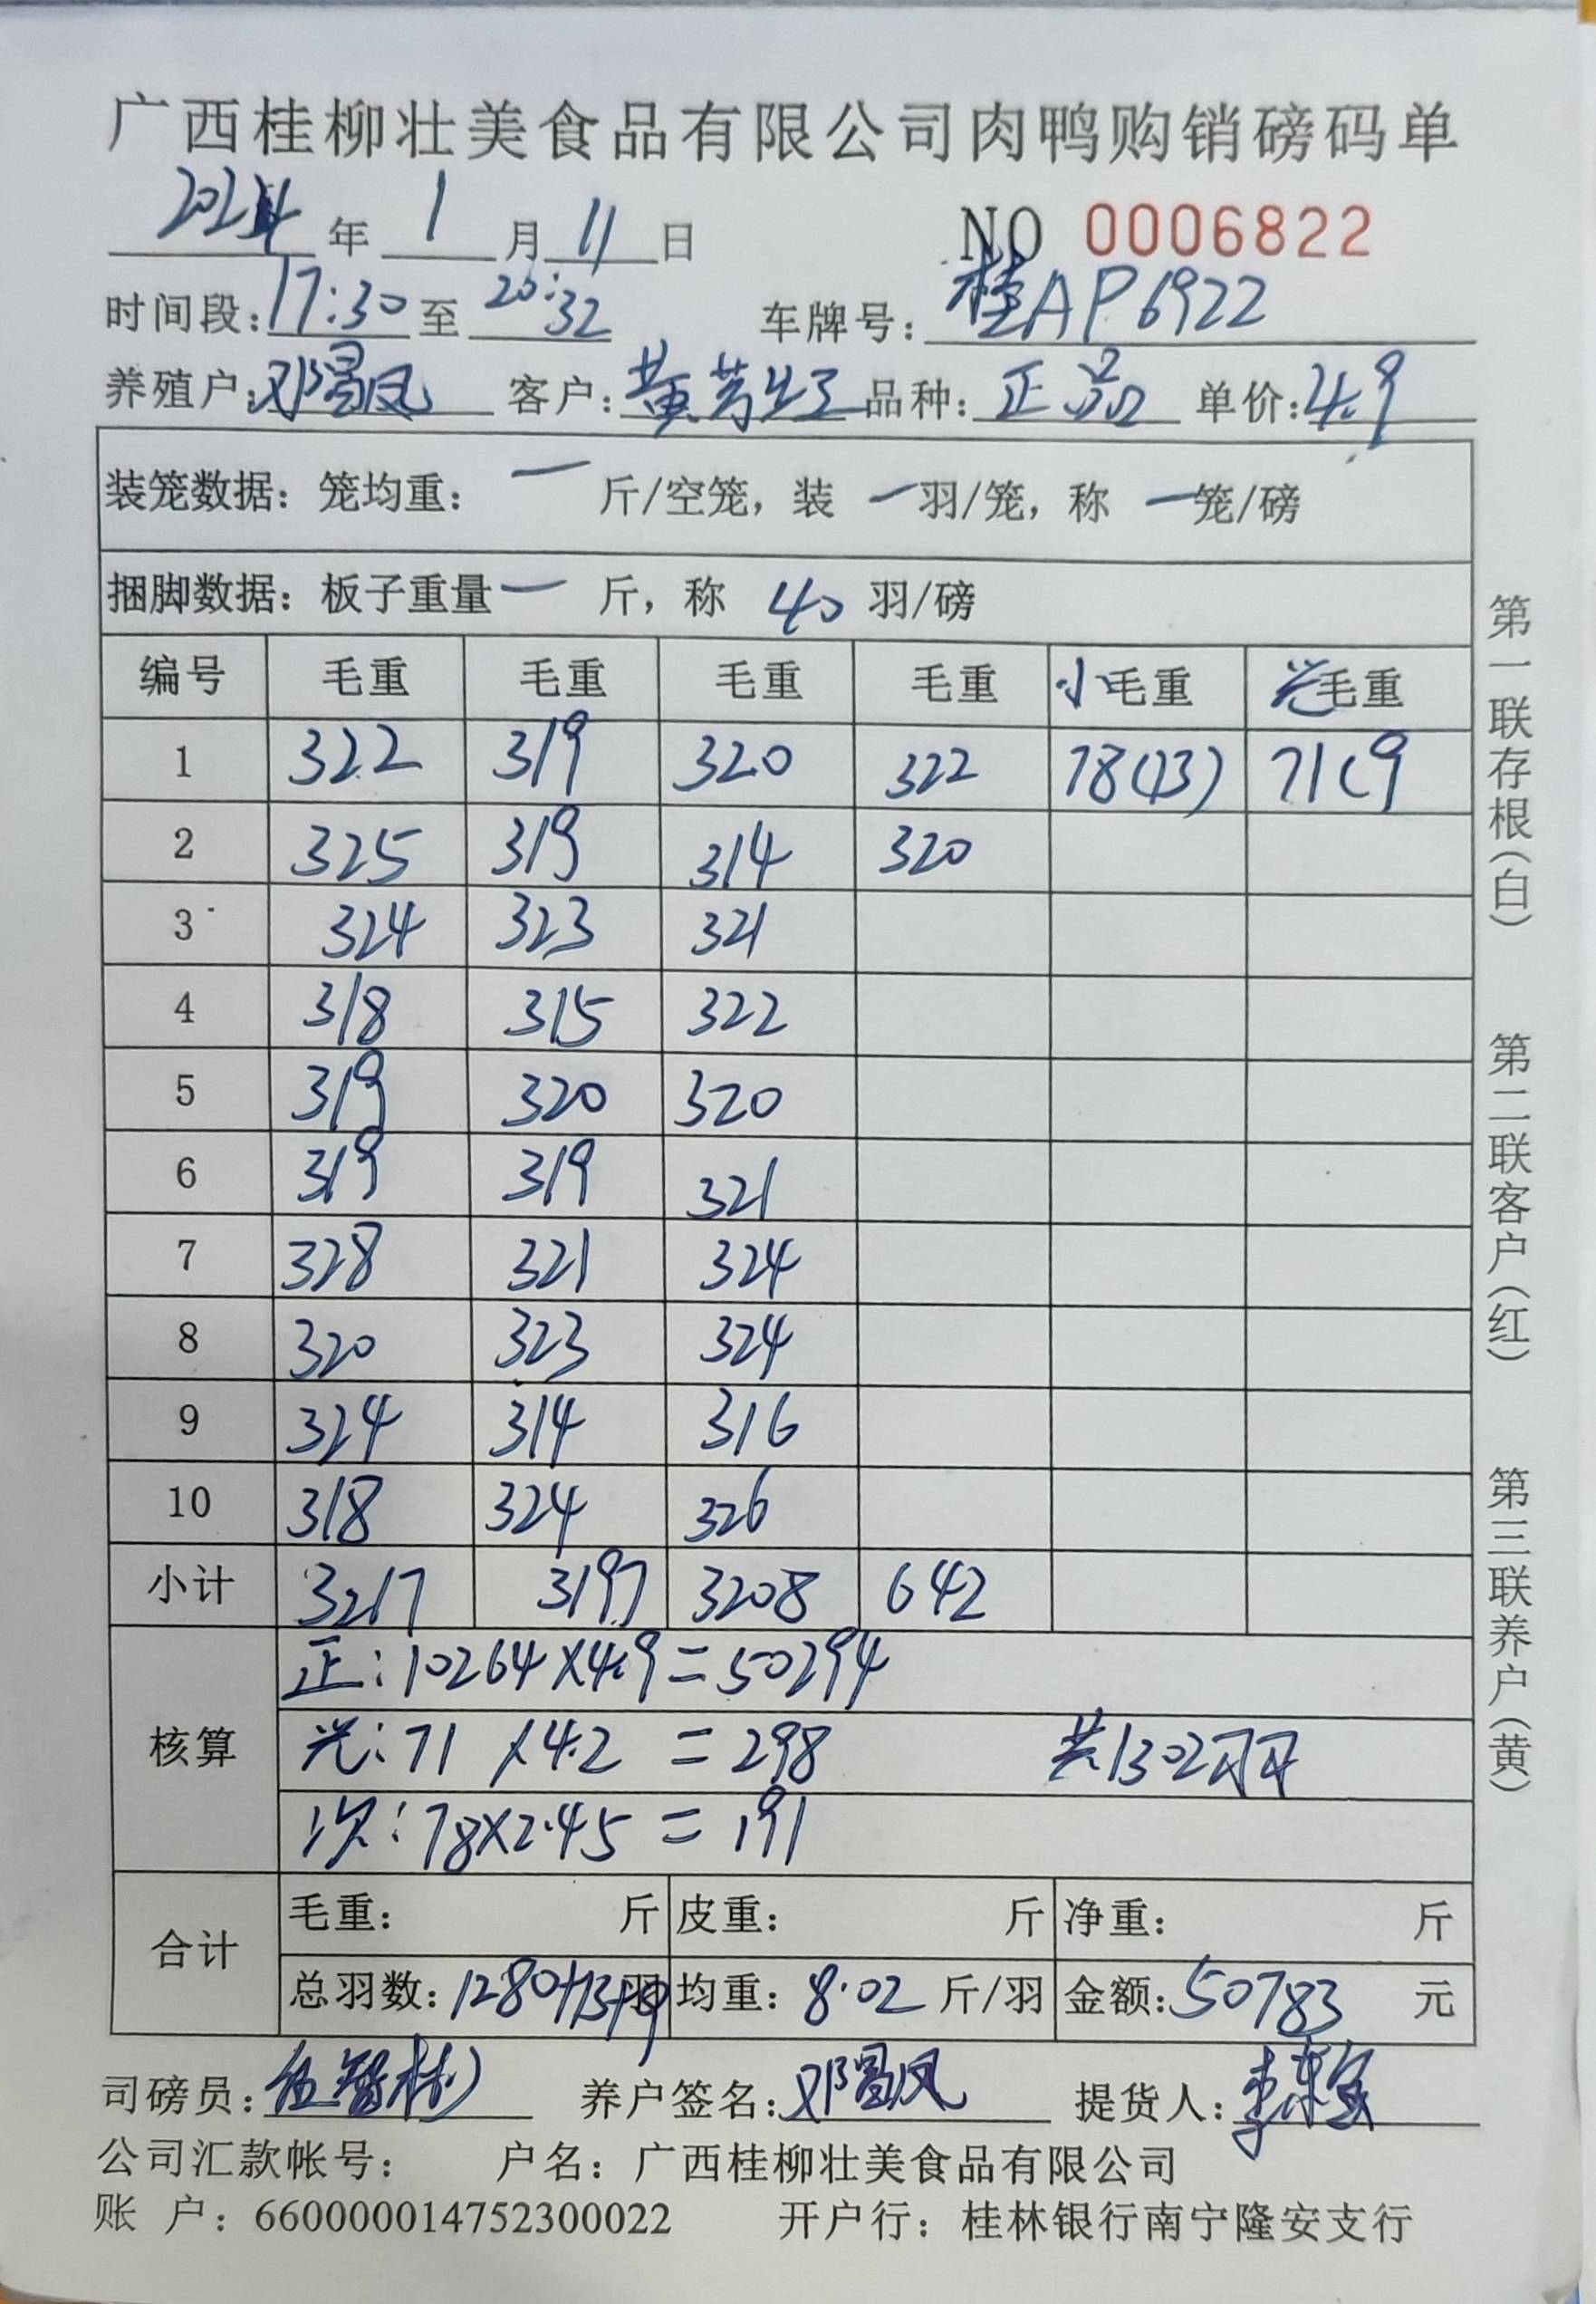 广西桂柳壮美食品有限公司肉鸭购销磅码单
2024 年 1 月 11 日 NO 0006822
时间段：17:30 至 20:32 车牌号：桂AP6922
养殖户：邓昌凤 客户：黄 品种：正品 单价：4.9
装笼数据：笼均重：一 斤/空笼，装 一 羽/笼，称 一 笼/磅
捆脚数据：板子重量 一 斤，称 40 羽/磅
编号 毛重 毛重 毛重 毛重 小毛重 光毛重
1 322 319 320 322 78(13) 71(9
2 325 319 314 320
3 324 323 321
4 318 315 322
5 319 320 320
6 319 319 321
7 328 321 324
8 320 323 324
9 324 314 316
10 318 324 326
小计 3217 3197 3208 642
核算
正：10264×4.9=50294
光：71 ×4.2 =298 共1302只
次：78×2.45 =191
合计
毛重： 斤 皮重： 斤 净重： 斤
总羽数：1280+13+9羽 均重：8.02 斤/羽 金额：50783 元
司磅员：伍智彬 养户签名：邓昌凤 提货人：李
公司汇款帐号： 户名：广西桂柳壮美食品有限公司
账 户：660000014752300022 开户行：桂林银行南宁隆安支行
第一联存根（白） 第二联客户（红） 第三联养户（黄）